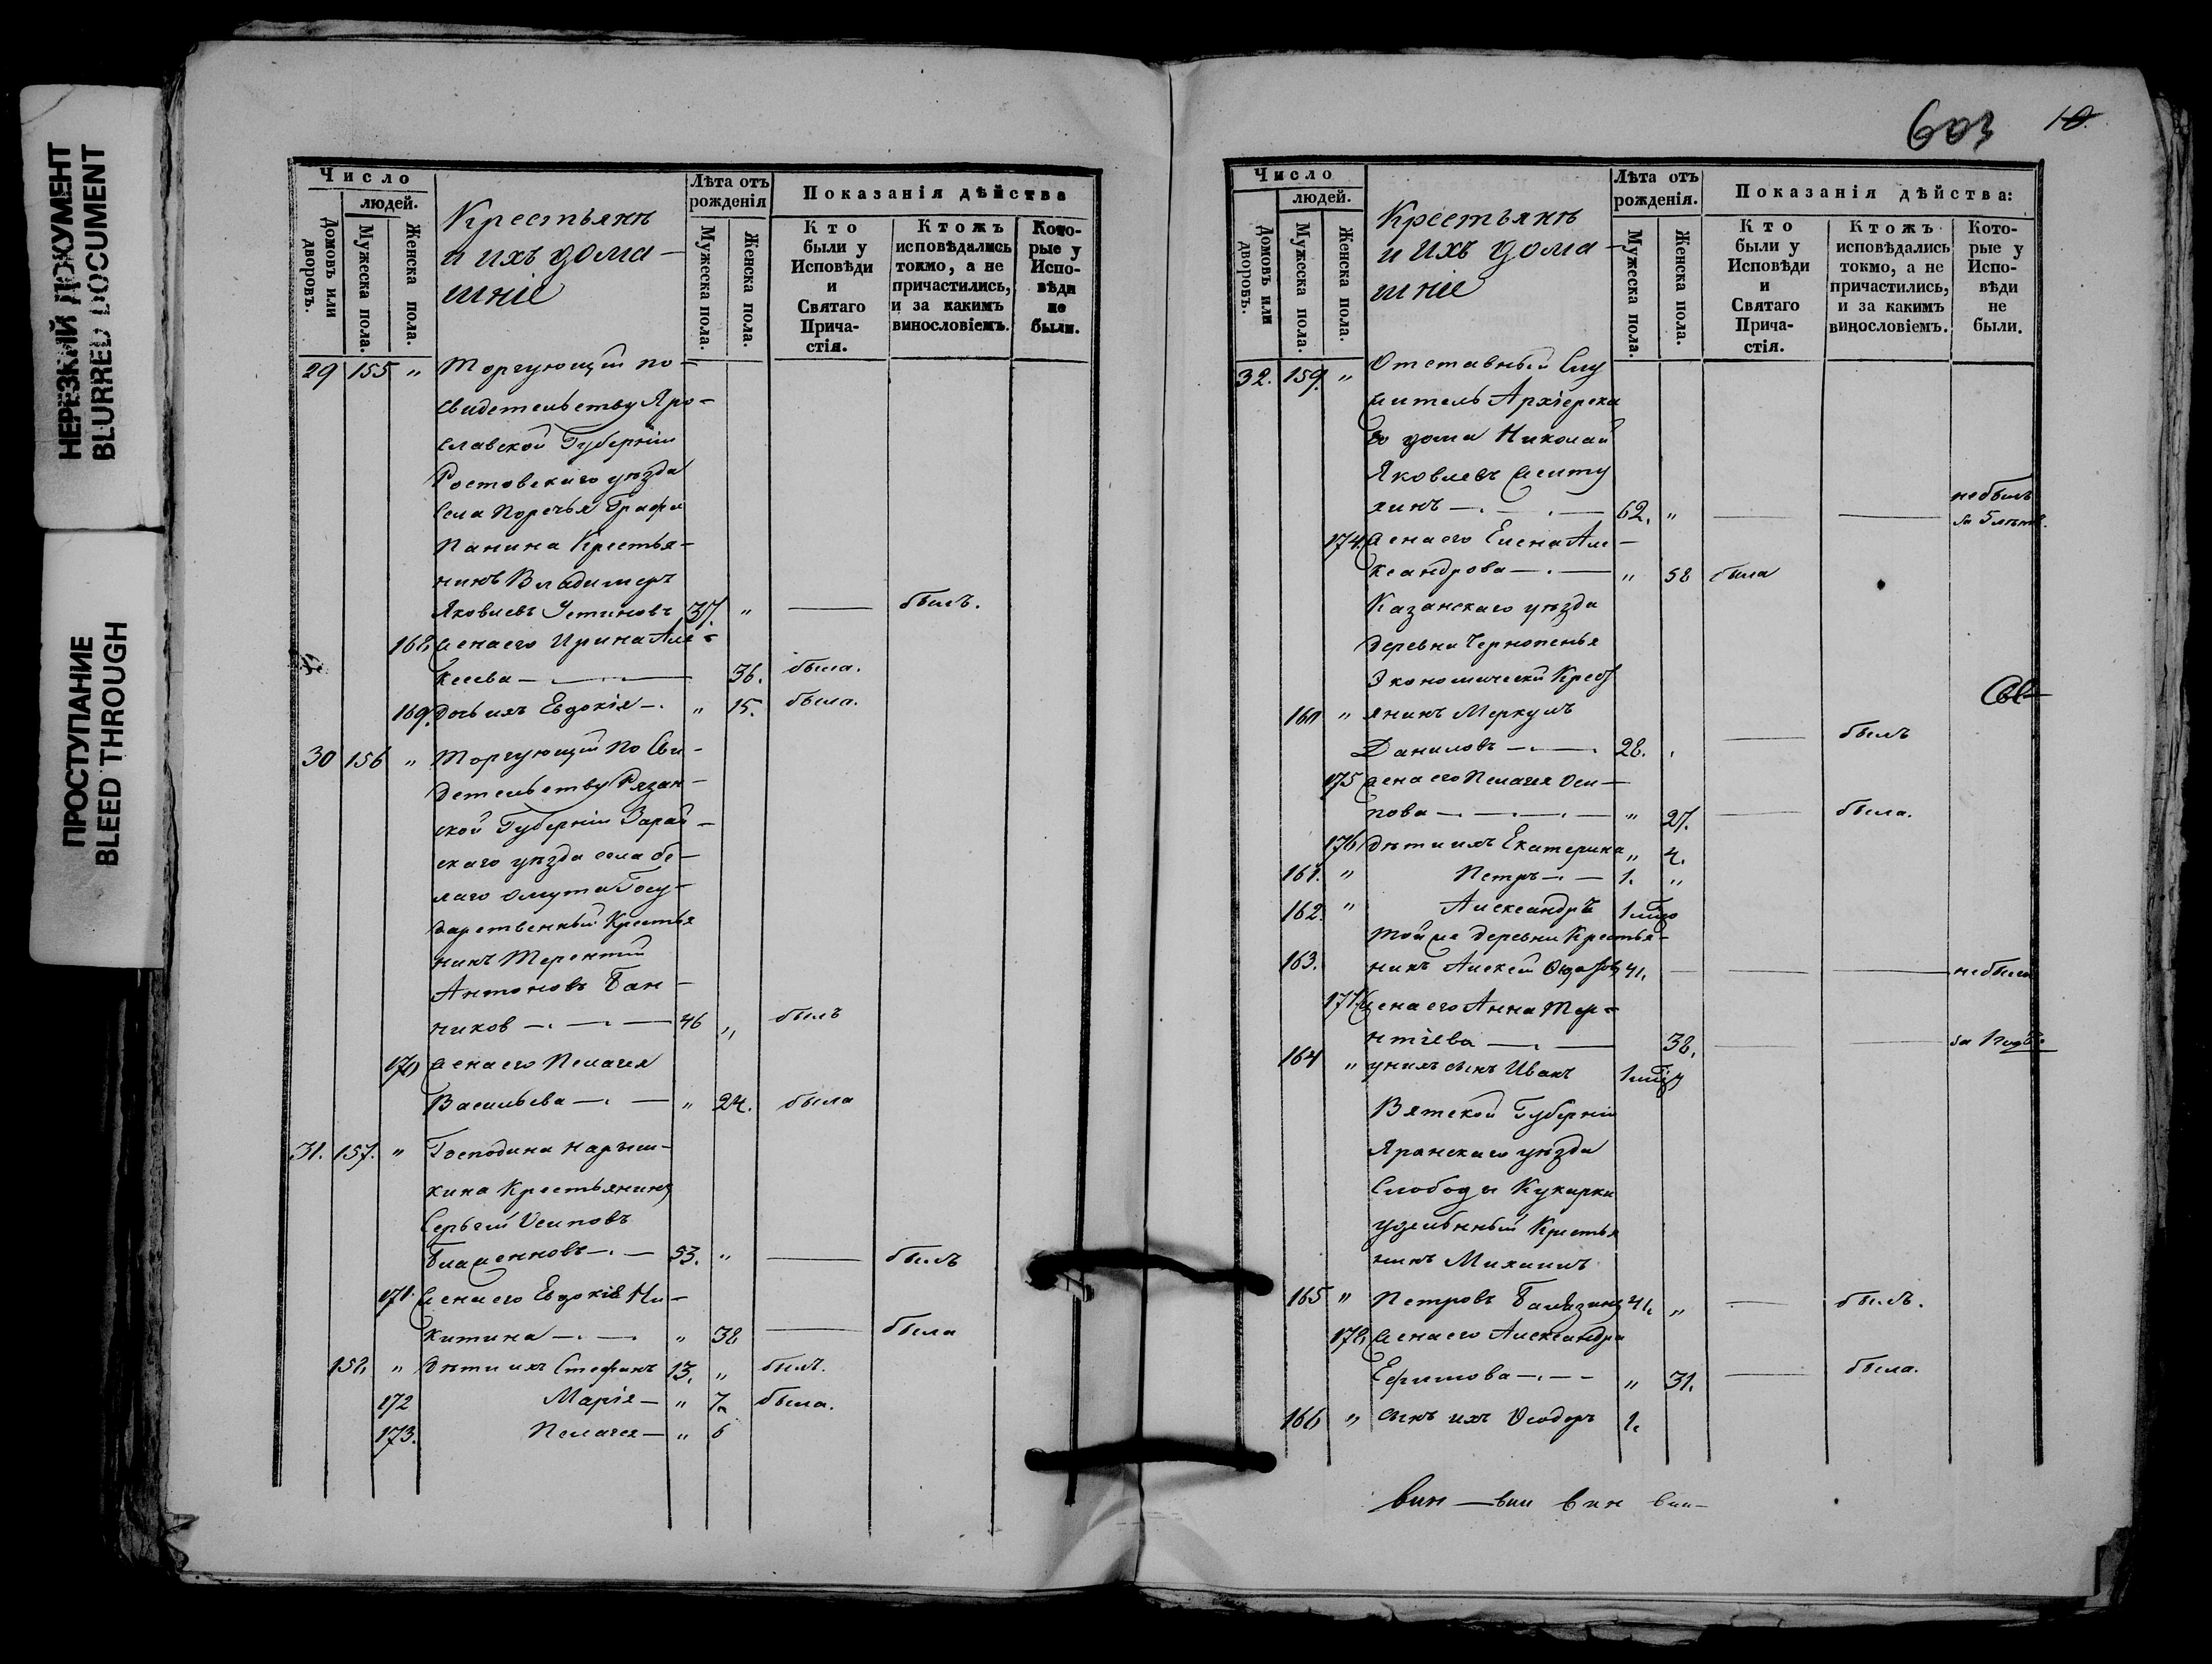 НЕРЕЗКИЙ ДОКУМЕНТ
BLURRED DOCUMENT
ПРОСТУПАНИЕ
BLEED THROUGH
Число
людей.
Домовъ или дворовъ.
Мужеска пола.
Женска пола.
Крестьянъ
и ихъ дома-
шніе
Лѣта отъ
рожденія
Мужеска пола.
Женска пола.
Показанія дѣйства
Кто
были у
Исповѣди
и
Святаго
Прича-
стія.
Ктожъ
исповѣдались
токмо, а не
причастились,
и за какимъ
винословіемъ.
Кото-
рые у
Испо-
вѣди
не
были.
29 155 " Торгующій по
свидетельству Яро-
славской Губерніи
Ростовскаго уѣзда
Села Поречья Графа
Панина Крестья-
нинъ Владимеръ
Яковлевъ Устиновъ 37. " — былъ.
168. Жена его Ирина Але-
ксеева — 36. была.
169. Дочь ихъ Евдокія — " 15. была.
30 156 " Торгующій по Сви-
детельству Рязан-
ской Губерніи Зарай-
скаго уѣзда села Бе-
лаго омута Госу-
дарственный Крестья
нинъ Терентій
Антоновъ Бан-
ников — 46 " былъ
170 Жена его Пелагея
Васильева — " 24. была
31. 157. " Господина Нарыш-
кина Крестьянинъ
Сергей Осиповъ
Блаженновъ — 53. " — былъ
171. Жена его Евдокія Ни-
китина — " 38 — была
158. " Дѣти ихъ Стефанъ 13. " былъ.
172 Марія — " 7. была.
173. Пелагея — " 6
603 10.
Число
людей.
Домовъ или дворовъ.
Мужеска пола.
Женска пола.
Крестьянъ
и ихъ дома-
шніе
Лѣта отъ
рожденія.
Мужеска пола.
Женска пола.
Показанія дѣйства:
Кто
были у
Исповѣди
и
Святаго
Прича-
стія.
Ктожъ
исповѣдались
токмо, а не
причастились,
и за какимъ
винословіемъ.
Кото-
рые у
Испо-
вѣди
не
были.
32. 159. " Отставный Слу
житель Архіерска
го дома Николай
Яковлевъ
хинъ — 62. " — — небылъ
174. Жена его Елена Але-
ксандрова — " 58 была
Казанскаго уѣзда
деревни Чернопенья
Экономическій Крест
160 " янинъ Меркулъ
Даниловъ — 28. — былъ
175 Жена его Пелагея Оси-
пова — " 27. — была.
176 Дѣти ихъ Екатерина " 4.
161. " Петръ — 1. "
162. " Александръ
Той же деревни Крестья-
163. нинъ Алексей 41. — — — небыли
177. Жена его Анна Тер-
нтіева — 38. — — за 1 годъ
164 " у нихъ сынъ Иванъ
Вятской Губерніи
Яранскаго уѣзда
Слободы Кукарки
удельный Крестья
нинъ Михаилъ
165 " Петровъ 41. " — былъ.
178. Жена его Александра
Ефимова — " 31. — была.
166 " сынъ ихъ Ѳеодоръ 1.